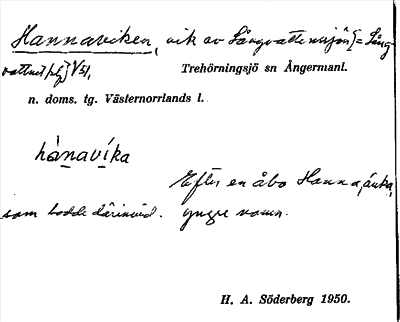 Hannaviken, vik av Långvattensjön [= Lång-
vattnet                Trehörningsjö sn Ångermanl.
n. doms. tg. Västernorrlands l.
hànavíka
Efter en åbo Hanna, änka,
som bodde därinvid. Yngre namn.
H. A. Söderberg 1950.